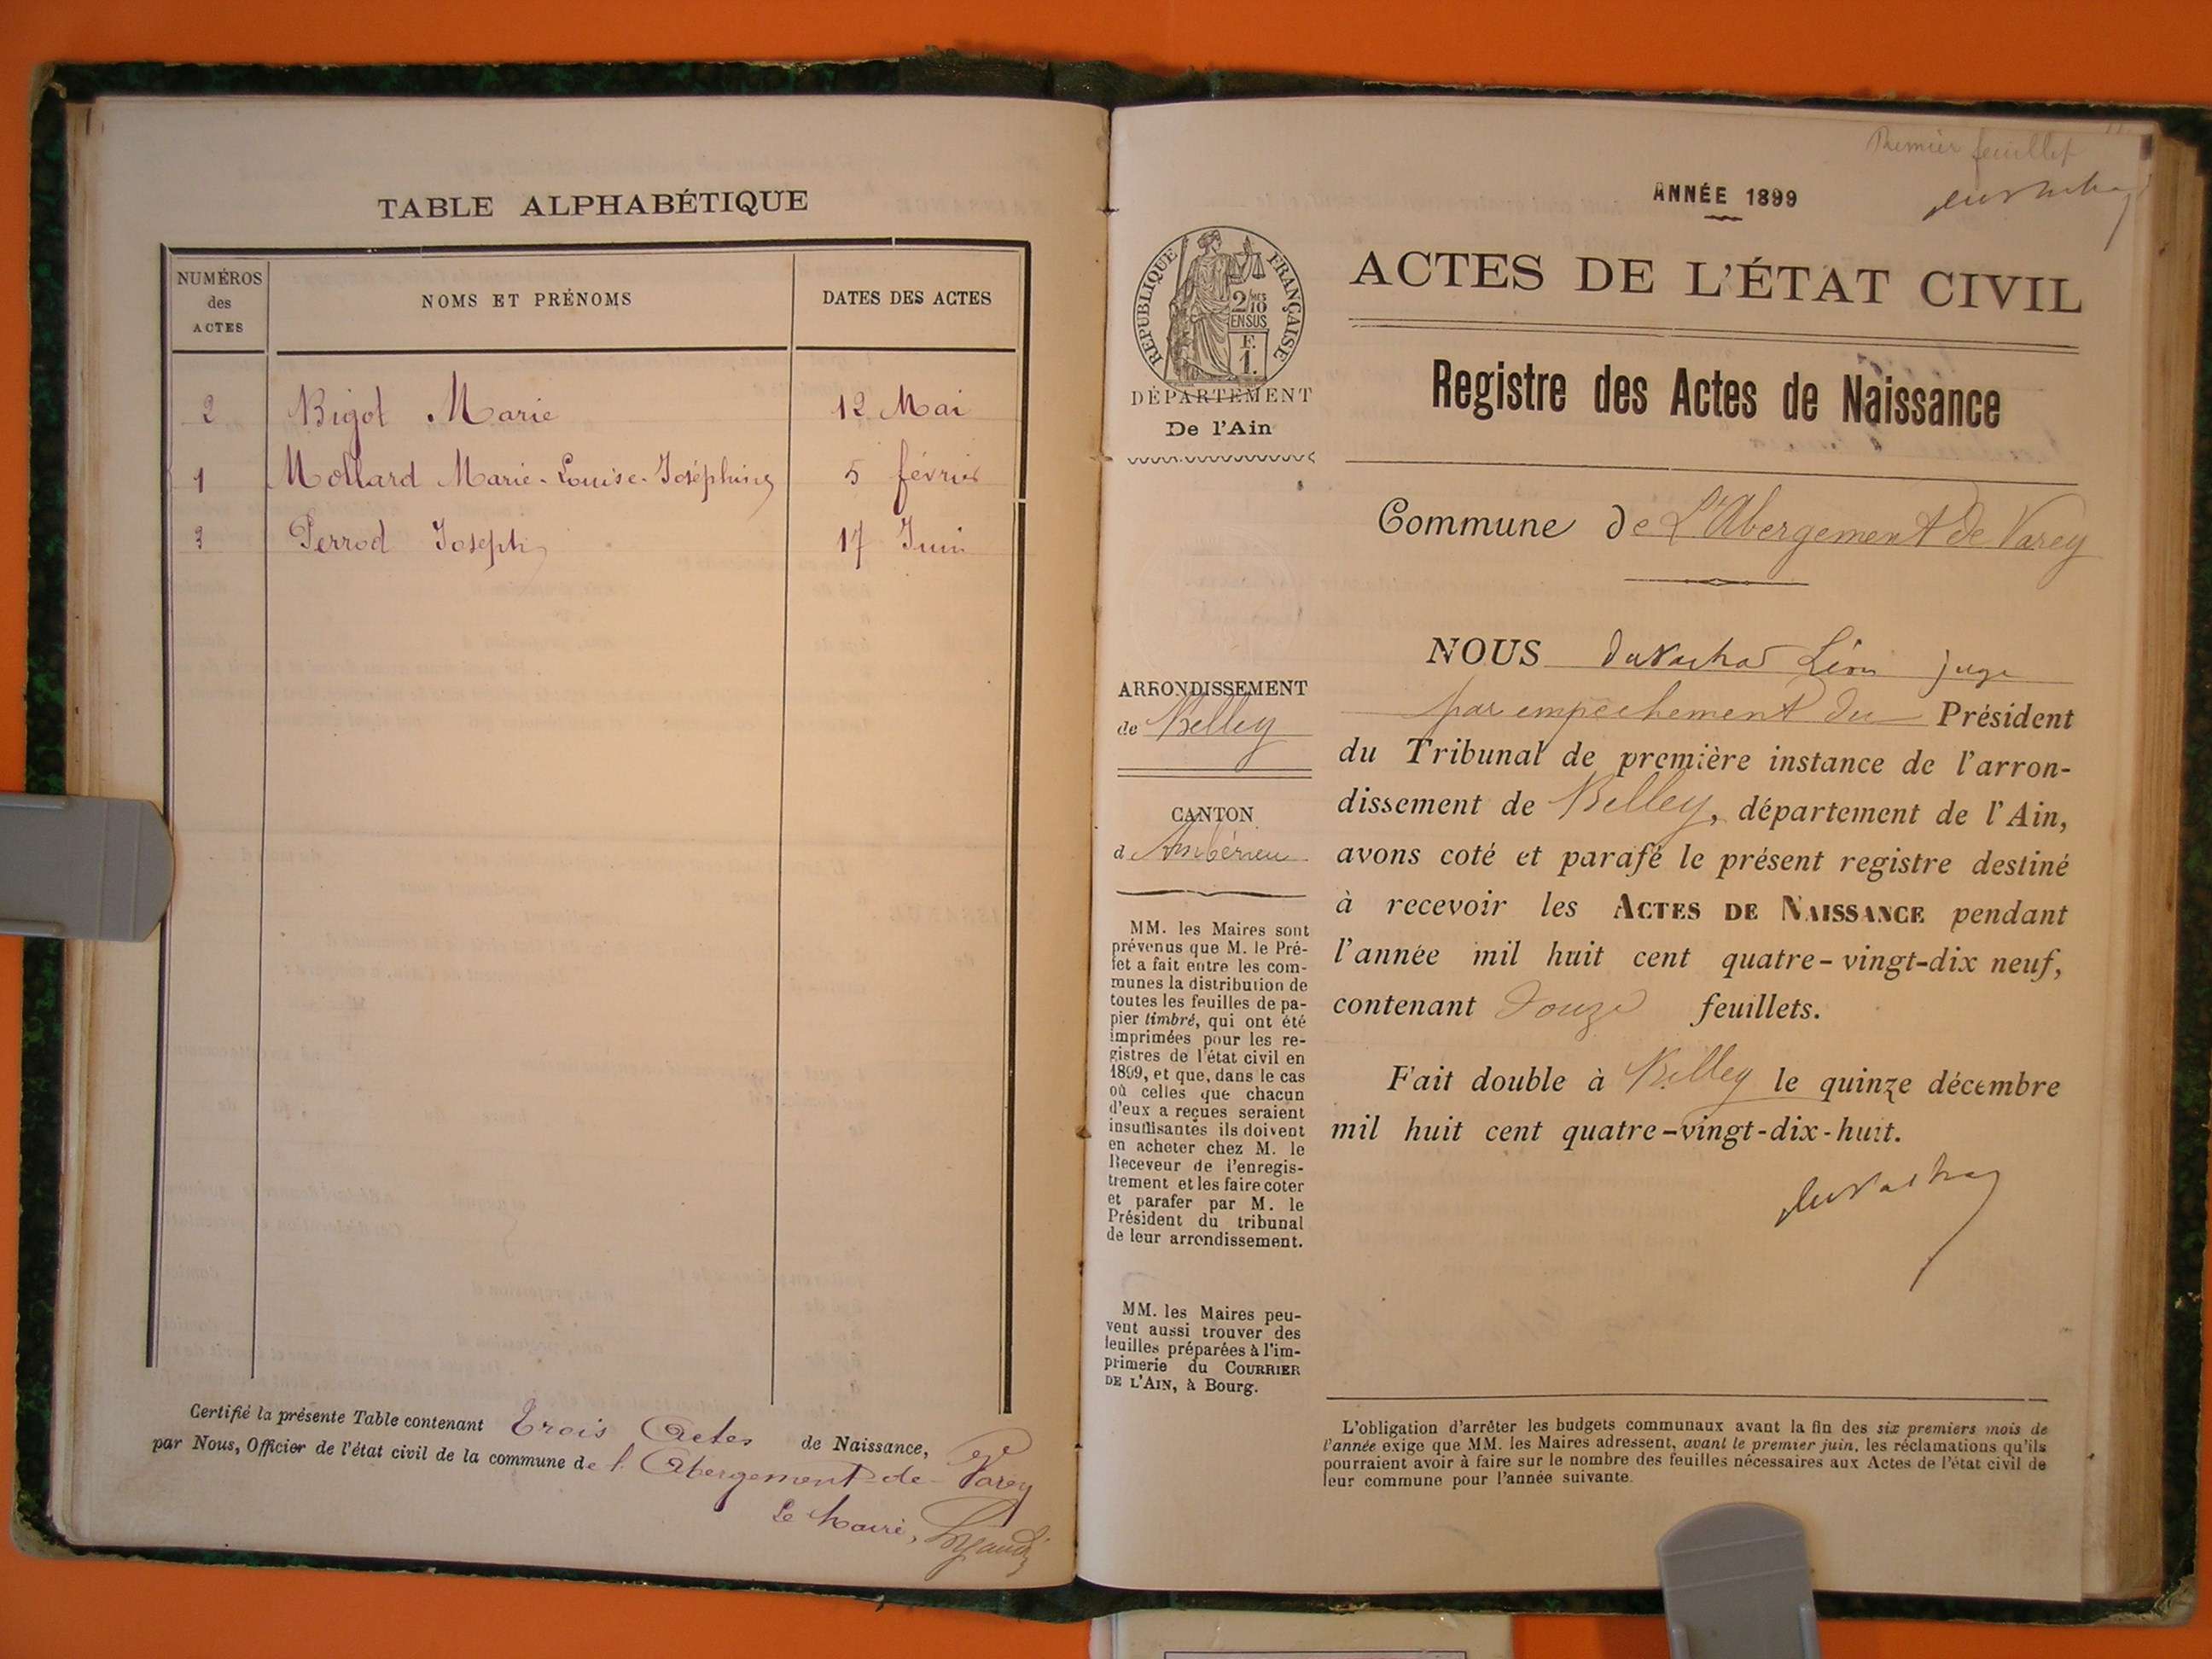 TABLE ALPHABÉTIQUE
NUMÉROS
des
ACTES
NOMS ET PRÉNOMS
DATES DES ACTES
2 Bigot Marie 12 Mai
1 Mollard Marie-Louise-Joséphine 5 février
3 Perrod Joseph 17 Juin
Certifié la présente Table contenant Trois Actes de Naissance,
par Nous, Officier de l'état civil de la commune de l'Abergement-de-Varey
Le Maire,
Premier feuillet
ANNÉE 1899
RÉPUBLIQUE FRANÇAISE
2/10
MES
EN SUS
F.
1.
DÉPARTEMENT
De l'Ain
ACTES DE L'ÉTAT CIVIL
Registre des Actes de Naissance
Commune de L'Abergement de Varey
ARRONDISSEMENT
de Belley
CANTON
d'Ambérieu
MM. les Maires sont
prévenus que M. le Pré-
fet a fait entre les com-
munes la distribution de
toutes les feuilles de pa-
pier timbré, qui ont été
imprimées pour les re-
gistres de l'état civil en
1899, et que, dans le cas
où celles que chacun
d'eux a reçues seraient
insuffisantes ils doivent
en acheter chez M. le
Receveur de l'enregis-
trement et les faire coter
et parafer par M. le
Président du tribunal
de leur arrondissement.
MM. les Maires peu-
vent aussi trouver des
feuilles préparées à l'im-
primerie du COURRIER
DE L'AIN, à Bourg.
NOUS Léon juge
par empêchement du Président
du Tribunal de première instance de l'arron-
dissement de Belley, département de l'Ain,
avons coté et parafé le présent registre destiné
à recevoir les ACTES DE NAISSANCE pendant
l'année mil huit cent quatre-vingt-dix neuf,
contenant douze feuillets.
Fait double à Belley le quinze décembre
mil huit cent quatre-vingt-dix-huit.
L'obligation d'arrêter les budgets communaux avant la fin des six premiers mois de
l'année exige que MM. les Maires adressent, avant le premier juin, les réclamations qu'ils
pourraient avoir à faire sur le nombre des feuilles nécessaires aux Actes de l'état civil de
leur commune pour l'année suivante.